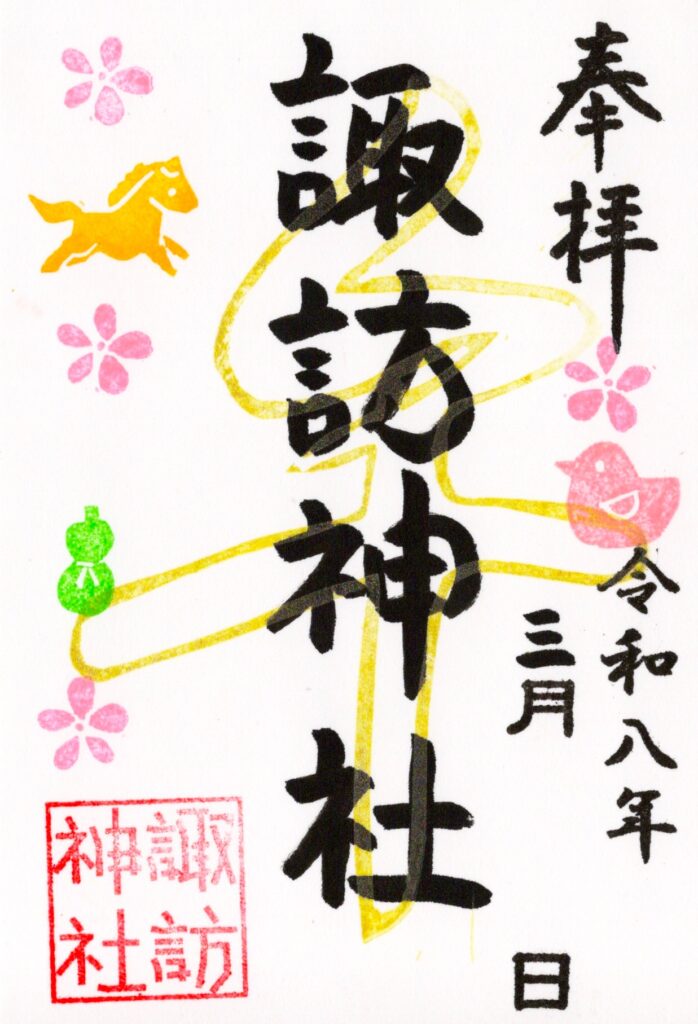 奉拝
令和八年
三月
日
諏訪神社
諏訪
神社